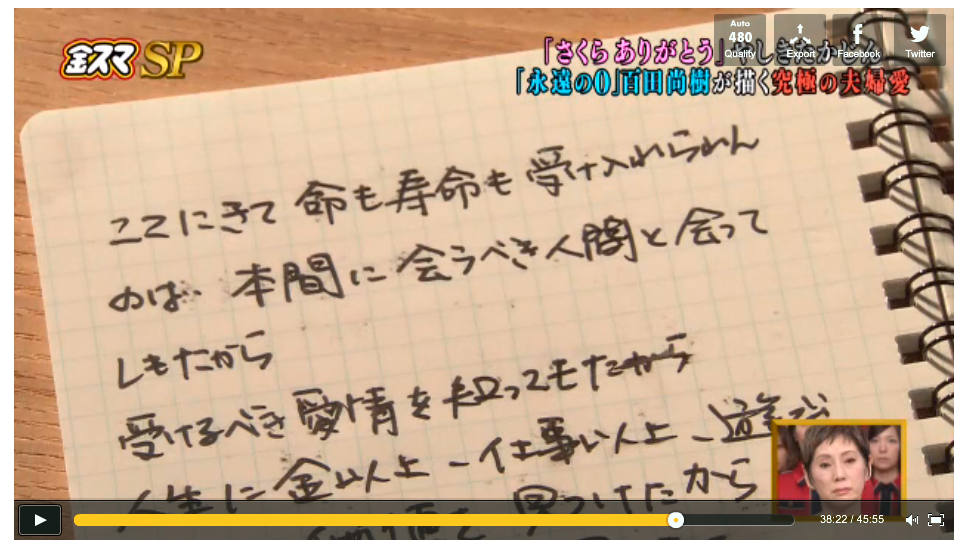 Auto
480
Quality
Export
Facebook
Twitter
金スマSP
「さくら ありがとう」やしきたかじん
「永遠の0」百田尚樹が描く究極の夫婦愛
ここにきて 命も寿命も 受け入れられん
のは、本間に 会うべき人間と 会って
しもたから
受けるべき 愛情を 知ってもたから
人生に 金以上 - 仕事以上 - 遊び
価値を 見つけたから
38:22 / 45:55